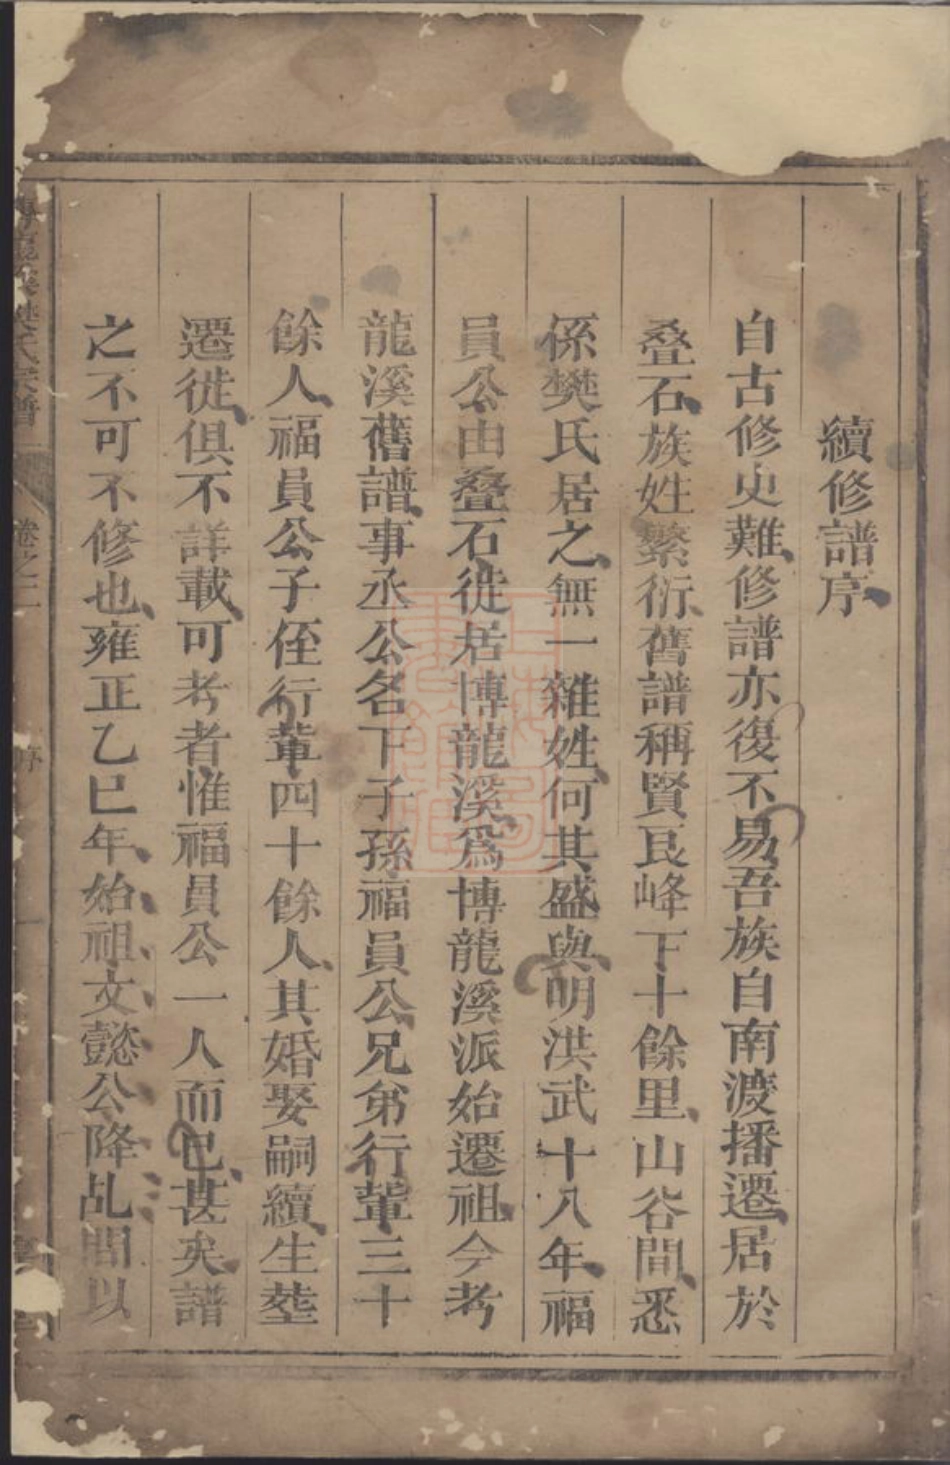 續修譜序
自古修史難修譜亦復不易吾族自南渡播遷居於
叠石族姓繁衍舊譜稱賢良峰下十餘里山谷間悉
係樊氏居之無一雜姓何其盛與明洪武十八年福
員公由叠石徙居博龍溪爲博龍溪派始遷祖今考
龍溪舊譜事丞公名下子孫福員公兄弟行輩三十
餘人福員公子侄行輩四十餘人其婚娶嗣續生塟
遷徙俱不詳載可考者惟福員公一人而已甚矣譜
之不可不修也雍正乙巳年始祖文懿公降乩間以
樊氏宗譜 卷之二 序 一